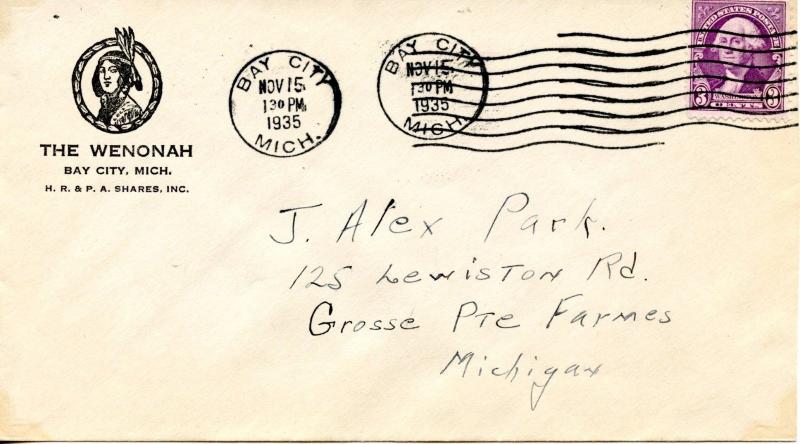 THE WENONAH
BAY CITY, MICH.
H. R. & P. A. SHARES, INC.
BAY CITY
NOV 15
1 30 PM
1935
MICH.
BAY CITY
NOV 15
1 30 PM
1935
MICH.
UNITED STATES POSTAGE
3 3
J. Alex Park.
125 Lewiston Rd.
Grosse Pte Farmes
Michigan